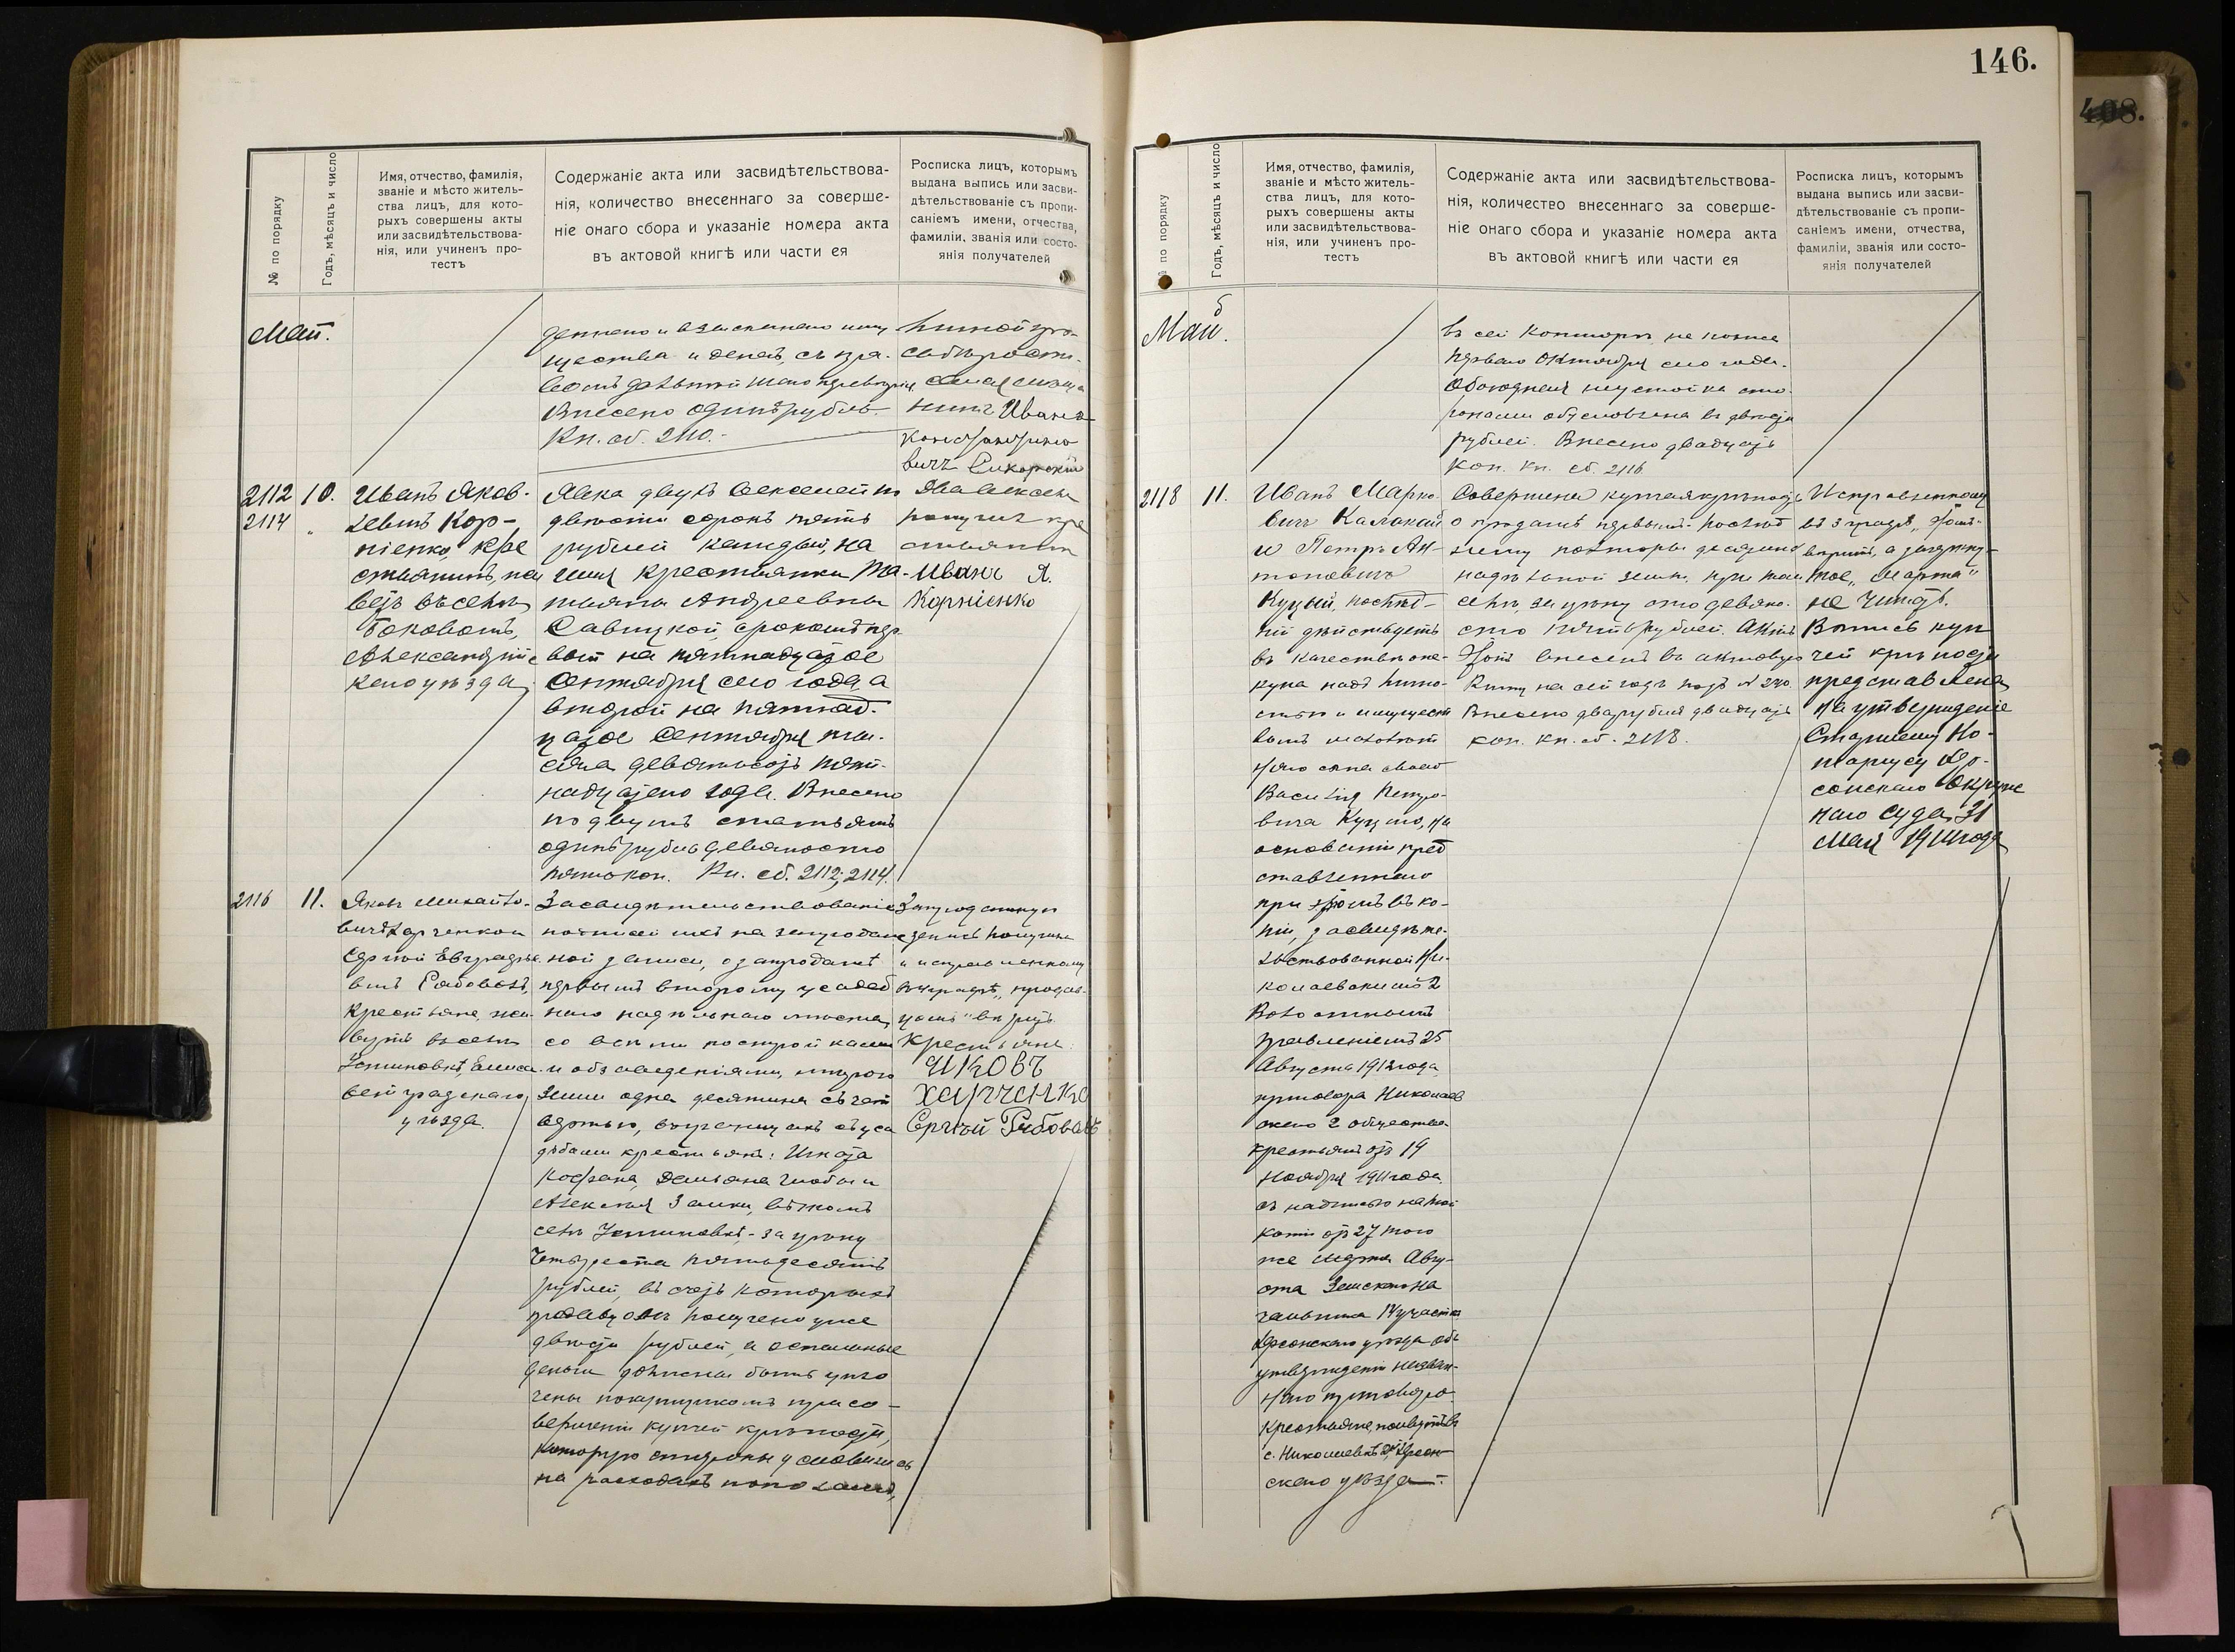 146.
408.
№ по порядку
Годъ, мѣсяцъ и число
Имя, отчество, фамилія,
званіе и мѣсто житель-
ства лицъ, для кото-
рыхъ совершены акты
или засвидѣтельствова-
нія, или учиненъ про-
тестъ
Содержаніе акта или засвидѣтельствова-
нія, количество внесеннаго за соверше-
ніе онаго сбора и указаніе номера акта
въ актовой книгѣ или части ея
Росписка лицъ, которымъ
выдана выпись или засви-
дѣтельствованіе съ пропи-
саніемъ имени, отчества,
фамиліи, званія или состо-
янія получателей
Май.
и денегъ, съ пра-
Внесено одинъ рубль.
Кн. сб. 2110.
Ивана
Константино
вичъ Сикорскій
2112
2114
10.
Иванъ Яков-
левичъ Кор-
ніенко, кре
стьянинъ,
вегъ въ селѣ
Боковомъ,
Александрій
скаго уѣзда
Явка двухъ векселей по
двѣсти сорокъ пять
рублей каждый, на
имя крестьянки Та-
тьяны Андреевны
Савицкой, срокомъ пер
вый на пятнадцатое
Сентября сего года, а
второй на пятнад-
цатое Сентября ты-
сяча девятьсотъ пят-
надцатаго года. Внесено
по двумъ статьямъ
одинъ рубль девяносто
пять коп. Кн. сб. 2112; 2114.
Два векселя
получилъ кре
стьянинъ
Иванъ Я.
Корніенко
2116
11.
Яковъ Михайло-
вичъ Харченко и
вичъ Рябовалъ,
крестьяне, жи-
вутъ въ селѣ
Устиновкѣ, Елиса-
ветградскаго
уѣзда.
Засвидѣтельствованіе
подписей ихъ на запродаж
ной записи, о запродажѣ
первымъ второму усадеб
наго надѣльнаго мѣста,
со всѣми постройками
и обзаведеніями, мѣрою
земли одна десятина съ чет
вертью, въ границахъ съ уса
дьбами крестьянъ: Игната
Алексѣя Заики, въ томъ
селѣ Устиновкѣ, - за цѣну
четыреста пятьдесятъ
рублей, въ счетъ которыхъ
продавцомъ получено уже
двѣсти рублей, а остальные
деньги должны быть упла
чены покупщикомъ при со-
вершеніи купчей крѣпости,
которую стороны условились
на расходахъ пополамъ,
Запродажную
запись получили
и исправленному
въ 4 графѣ „продав-
цомъ" вѣрить
Крестьяне:
Яковъ
Харченко
Сергій Рябовалъ
№ по порядку
Годъ, мѣсяцъ и число
Имя, отчество, фамилія,
званіе и мѣсто житель-
ства лицъ, для кото-
рыхъ совершены акты
или засвидѣтельствова-
нія, или учиненъ про-
тестъ
Содержаніе акта или засвидѣтельствова-
нія, количество внесеннаго за соверше-
ніе онаго сбора и указаніе номера акта
въ актовой книгѣ или части ея
Росписка лицъ, которымъ
выдана выпись или засви-
дѣтельствованіе съ пропи-
саніемъ имени, отчества,
фамиліи, званія или состо-
янія получателей
Май.
въ сей Конторѣ, не позже
перваго Октября сего года.
Обоюдная неустойка сто-
ронами обусловлена въ двѣсти
рублей. Внесено двадцать
коп. Кн. сб. 2116
2118
11.
Иванъ Марко-
вичъ
и Петръ Ан-
тоновичъ
Куцый, послѣд-
ній дѣйствуетъ
въ качествѣ опе-
куна надъ лично-
стью и имущест
вомъ малолѣт
няго сына своего
Василія Петро-
вича Куцаго, на
основаніи пред
ставленнаго
при этомъ въ ко-
піи, засвидѣте-
льствованной Ни-
колаевскимъ 2
Волостнымъ
Правленіемъ 25
Августа 1912 года,
приговора Николаев
скаго 2 общества
крестьянъ отъ 19
Ноября 1911 года
съ надписью на той
копіи отъ 27 того
же мѣсяца Авгу-
ста Земскаго На
чальника 14 участка
Херсонскаго уѣзда объ
утвержденіи назван-
наго приговора.
Крестьяне, живутъ въ
с. Николаевкѣ 2й, Херсон-
скаго уѣзда.
Совершена купчая крѣпость
о продажѣ первымъ послѣд
нему полторы десятины
надѣльной земли, при томъ
селѣ, за цѣну сто девяно-
сто пять рублей. Актъ
этотъ внесенъ въ актовую
книгу на сей годъ подъ № 270.
Внесено два рубля двадцать
коп. Кн. сб. 2118.
Исправленному
въ 3 графѣ „этомъ"
вѣрить, а зачеркну-
тое „марта"
не читать.
Выпись куп
чей крѣпости
представлена
на утвержденіе
Старшему Но-
таріусу Хер-
сонскаго Окруж
наго Суда 31
Мая 1914 года